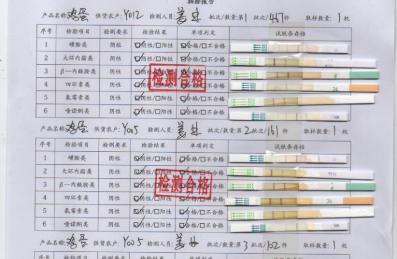 检验报告
产品名称 鸡蛋 供货农户 Y012 检测人员 批次/数量:第1批次/467件 取样数量 1枚
序号 检测项目 检测要求 检测结果 单项判定 试纸条存档
1 磺胺类 阴性 ☑阴性/□阳性 ☑合格/□不合格
2 大环内酯类 阴性 ☑阴性/□阳性 ☑合格/□不合格
3 β-内酰胺类 阴性 ☑阴性/□阳性 ☑合格/□不合格
4 四环素类 阴性 ☑阴性/□阳性 ☑合格/□不合格
5 氟霉素类 阴性 ☑阴性/□阳性 ☑合格/□不合格
6 喹诺酮类 阴性 ☑阴性/□阳性 ☑合格/□不合格
检测合格
产品名称 鸡蛋 供货农户 Y005 检测人员 批次/数量:第2批次/161件 取样数量 1枚
序号 检测项目 检测要求 检测结果 单项判定 试纸条存档
1 磺胺类 阴性 ☑阴性/□阳性 ☑合格/□不合格
2 大环内酯类 阴性 ☑阴性/□阳性 ☑合格/□不合格
3 β-内酰胺类 阴性 ☑阴性/□阳性 ☑合格/□不合格
4 四环素类 阴性 ☑阴性/□阳性 ☑合格/□不合格
5 氟霉素类 阴性 ☑阴性/□阳性 ☑合格/□不合格
6 喹诺酮类 阴性 ☑阴性/□阳性 ☑合格/□不合格
检测合格
产品名称 鸡蛋 供货农户 Y005 检测人员 批次/数量:第3批次/102件 取样数量 1枚